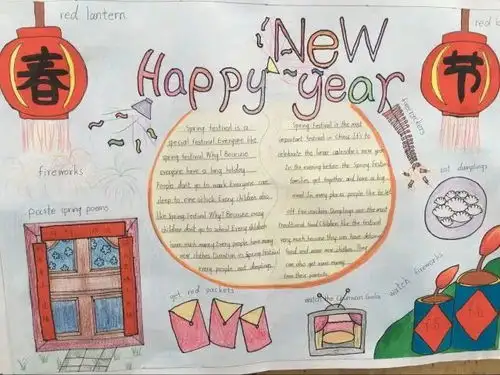 red lantern
NeW
Happy year
春
节
red l
firecrackers
fireworks
eat dumplings
paste spring poems
Spring festival is a
special festival! Everyone like
spring festival. Why? Because
everyone have a long holiday.
People don't go to work. Everyone can
sleep to nine o'clock. Every children also
like Spring Festival. Why? Because many
children don't go to school. Every children
have much money. Every people have many
new clothes. Dumplin in Spring Festival
every people eat dumplings.
Spring Festival is the most
important festival in China. It's to
celebrate the lunar calendar's new year.
In the evening before the Spring Festival
families get together and have a big
meal. In many places people like to set
off firecrackers. Dumplings are the most
traditional food. Children like the festival
very much because they can have delicious
food and wear new clothes. They
can also get some money
from their parents.
get red packets
watch the Chunwan Gala
watch fireworks